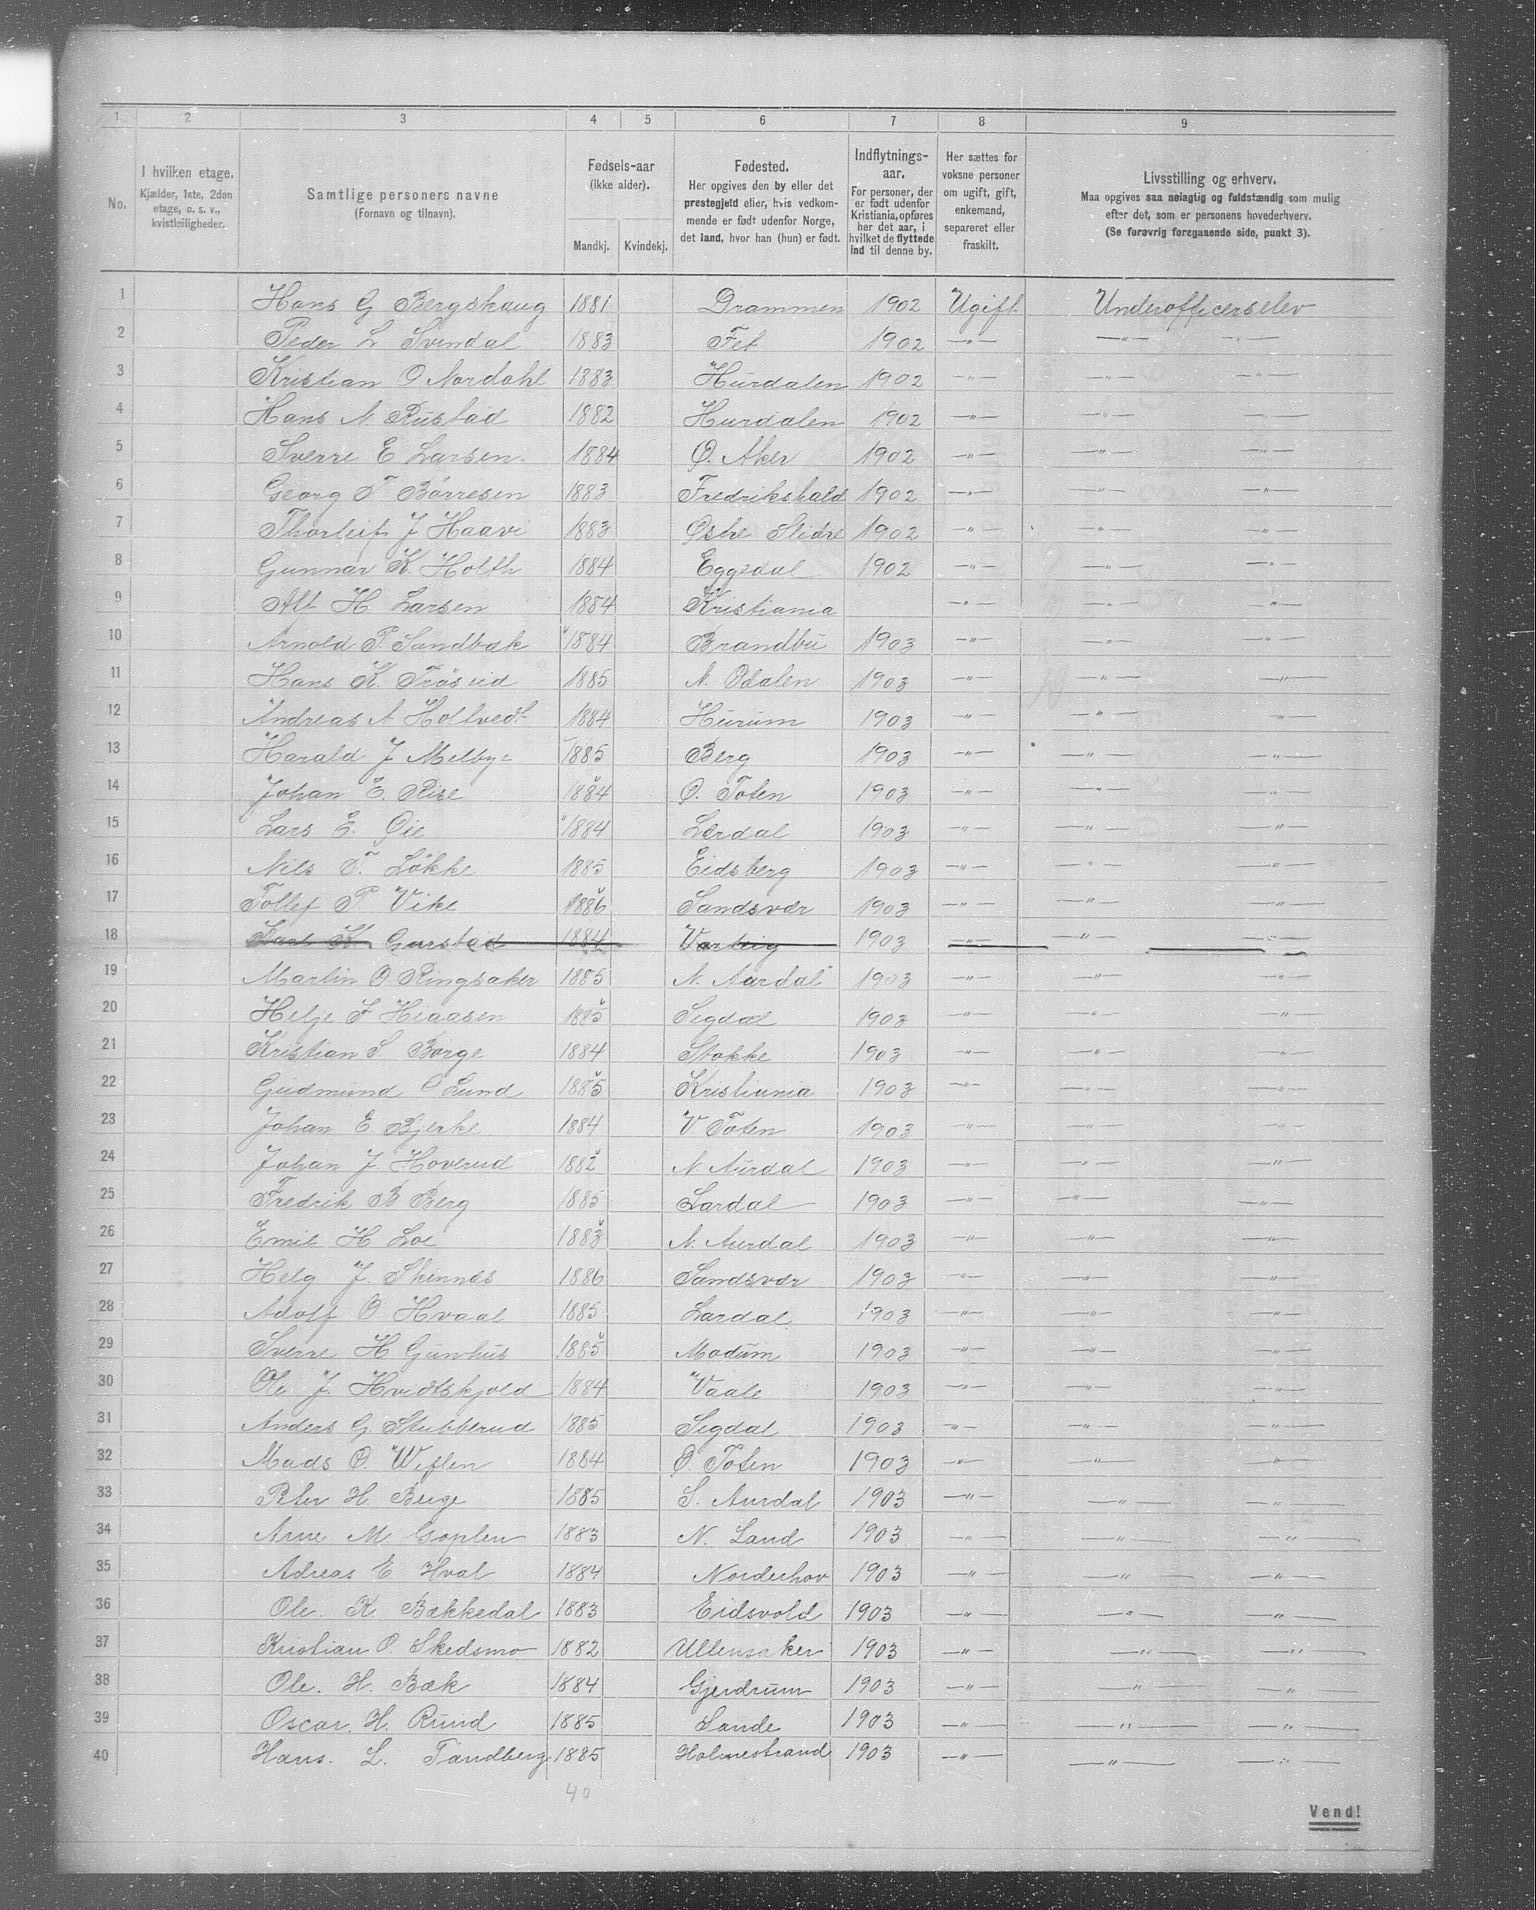 1. 2 3 4 5 6 7 8 9
No.
I hvilken etage.
Kjælder, 1ste, 2den
etage, o. s. v.,
kvistleiligheder.
Samtlige personers navne
(Fornavn og tilnavn).
Fødsels-aar
(ikke alder).
Mandkj. Kvindekj.
Fødested.
Her opgives den by eller det
prestegjeld eller, hvis vedkom-
mende er født udenfor Norge,
det land, hvor han (hun) er født.
Indflytnings-
aar.
For personer, der
er født udenfor
Kristiania, opføres
her det aar, i
hvilket de flyttede
ind til denne by.
Her sættes for
voksne personer
om ugift, gift,
enkemand,
separeret eller
fraskilt.
Livsstilling og erhverv.
Maa opgives saa nøiagtig og fuldstændig som mulig
efter det, som er personens hovederhverv.
(Se forøvrig foregaaende side, punkt 3).
1 Hans G Bergskaug 1881 Drammen 1902 Ugift Underofficerselev
2 Peder L Svendal 1883 Fet 1902 —"— —"— —"—
3 Kristian O Nordahl 1883 Hurdalen 1902 —"— —"— —"—
4 Hans N Rustad 1882 Hurdalen 1902 —"— —"— —"—
5 Sverre E Larsen. 1884 Ø. Aker 1902 —"— —"— —"—
6 Georg T Børresen 1883 Fredrikshald 1902 —"— —"— —"—
7 Thorleif J Haavi 1883 Østre Slidre 1902 —"— —"— —"—
8 Gunnar K. Holth 1884 Eggedal 1902 —"— —"— —"—
9 Alf H Larsen 1884 Kristiania —"— —"— —"—
10 Arnold P Sandbæk 1884 Brandbu 1903 —"— —"— —"—
11 Hans K. Frøsvid 1885 N. Odalen 1903 —"— —"— —"—
12 Andreas A Holtvedt 1884 Hurum 1903 —"— —"— —"—
13 Harald J Melbye 1885 Berg 1903 —"— —"— —"—
14 Johan E. Rise 1884 Ø. Toten 1903 —"— —"— —"—
15 Lars E. Øie 1884 Lærdal 1903 —"— —"— —"—
16 Nils T. Løkke 1885 Eidsberg 1903 —"— —"— —"—
17 Tollef P. Vike 1886 Sandsvær 1903 —"— —"— —"—
18 K Garstad 1884 Varteig 1903 —"— —"— —"—
19 Martin O. Ringsaker 1885 N. Aurdal 1903 —"— —"— —"—
20 Helje F Hiaasen 1885 Sigdal 1903 —"— —"— —"—
21 Kristian S Borge 1884 Stokke 1903 —"— —"— —"—
22 Gudmund O Lund 1885 Kristiania 1903 —"— —"— —"—
23 Johan E. Bjerke 1884 V. Toten 1903 —"— —"— —"—
24 Johan J Hoverud 1882 N Aurdal 1903 —"— —"— —"—
25 Fredrik B Berg 1885 Lardal 1903 —"— —"— —"—
26 Emil H Loe 1883 N. Aurdal 1903 —"— —"— —"—
27 Helg J Skinnes 1886 Sandsvær 1903 —"— —"— —"—
28 Adolf O. Hvaal 1885 Lardal 1903 —"— —"— —"—
29 Sverre H Gunhus 1885 Modum 1903 —"— —"— —"—
30 Ole J Hvidtskjold 1884 Vaale 1903 —"— —"— —"—
31 Anders G Skubberud 1885 Sigdal 1903 —"— —"— —"—
32 Mads O. Weflen 1884 Ø. Toten 1903 —"— —"— —"—
33 Peter H Berge 1885 S. Aurdal 1903 —"— —"— —"—
34 Arne M Goplen 1883 N. Land 1903 —"— —"— —"—
35 Adreas E Hval 1884 Norderhov 1903 —"— —"— —"—
36 Ole. K. Bækkedal 1883 Eidsvold 1903 —"— —"— —"—
37 Kristian O. Skedsmo 1882 Ullensaker 1903 —"— —"— —"—
38 Ole. H. Bæk 1884 Gjerdrum 1903 —"— —"— —"—
39 Oscar. H. Rund 1885 Sande 1903 —"— —"— —"—
40 Hans. L. Tandberg 1885 Holmestrand 1903 —"— —"— —"—
40
Vend!